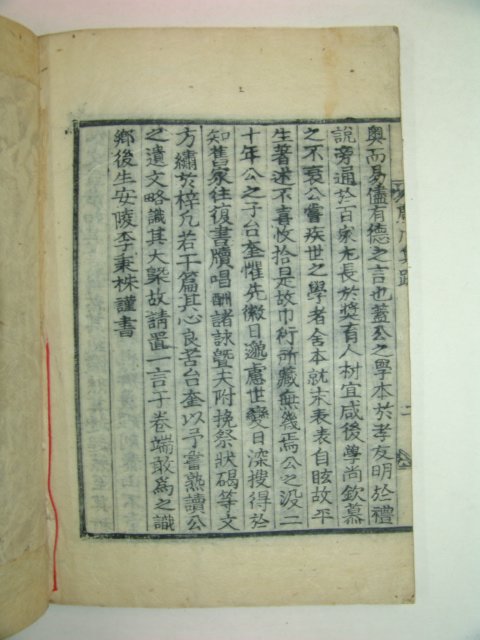 奧而易儘有德之言也蓋公之學本於孝友明於禮
說旁通於百家尤長於奬育人材宜咸後尊尚欽慕
之不衰公嘗疾世之學者舍本就末表表自眩故平
生著述不喜收拾是故巾衍所藏無幾焉公之沒二
十年公之子台奎懼先徽日邈慮世變日深搜得於
知舊家往復書牘唱酬諸詠曁夫附挽祭狀碣等文
方繡於梓凡若干篇其心良苦台奎以予嘗熟讀公
之遺文略識其大槩故請置一言于卷端敢爲之識
鄕後生安陵李秉株謹書